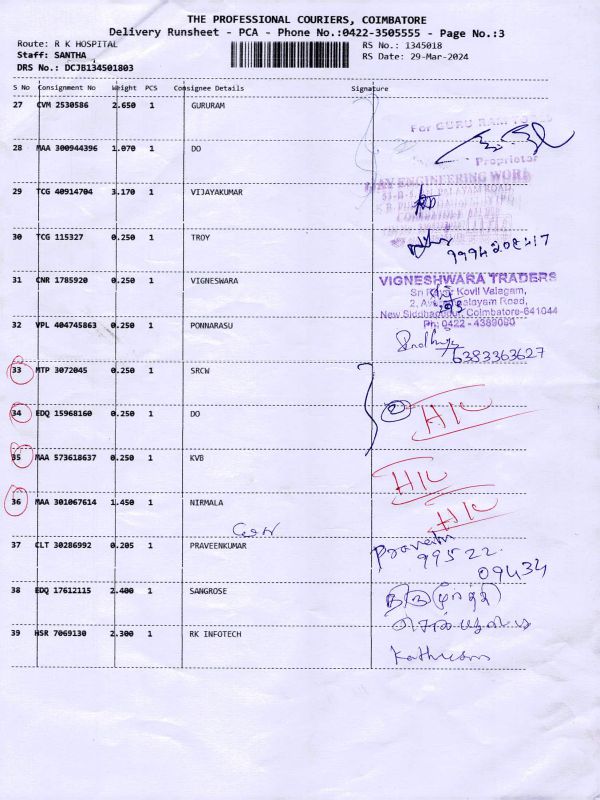 THE PROFESSIONAL COURIERS, COIMBATORE
Delivery Runsheet - PCA - Phone No.:0422-3505555 - Page No.:3
Route: R K HOSPITAL
RS No.: 1345018
Staff: SANTHA
RS Date: 29-Mar-2024
DRS No.: DCJB134501803
S No Consignment No Weight PCS Consignee Details Signature
27 CVM 2530586 2.650 1 GURURAM
For GURU RAM
Proprietor
28 MAA 300944396 1.070 1 DO
ENGINEERING WORK
29 TCG 40914704 3.170 1 VIJAYAKUMAR
30 TCG 115327 0.250 1 TROY
31 CNR 1785920 0.250 1 VIGNESWARA
VIGNESHWARA TRADERS
Kovil Valagam,
Road,
Coimbatore-641044
Ph: 0422 - 4369090
32 VPL 404745863 0.250 1 PONNARASU
6383363627
33 MTP 3072045 0.250 1 SRCW
34 EDQ 15968160 0.250 1 DO
2 HIC
35 MAA 573618637 0.250 1 KVB
HIC
36 MAA 301067614 1.450 1 NIRMALA
HIC
37 CLT 30286992 0.205 1 PRAVEENKUMAR
99522
09434
38 EDQ 17612115 2.400 1 SANGROSE
39 HSR 7069130 2.300 1 RK INFOTECH